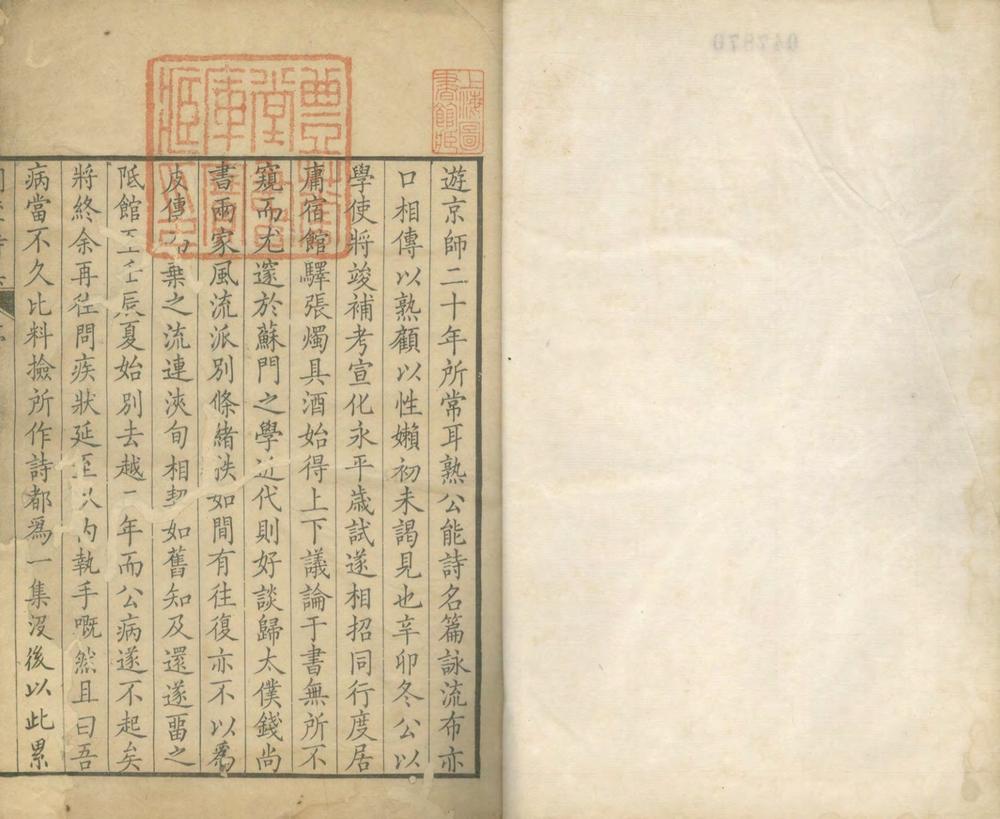 遊京師二十年所常耳熟公能詩名篇詠流布亦
口相傳以熟顧以性嬾初未謁見也辛卯冬公以
學使將竣補考宣化永平歲試遂相招同行度居
庸宿館驛張燭具酒始得上下議論于書無所不
窺而尤邃於蘇門之學近代則好談歸太僕錢尚
書兩家風流派別條緒泆如間有往復亦不以爲
皮傅而棄之流連浹旬相契如舊知及還遂畱之
邸館至壬辰夏始別去越二年而公病遂不起矣
將終余再徃問疾狀延至臥內執手嘅然且曰吾
病當不久比料撿所作詩都爲一集沒後以此累
上海圖書館藏
047870